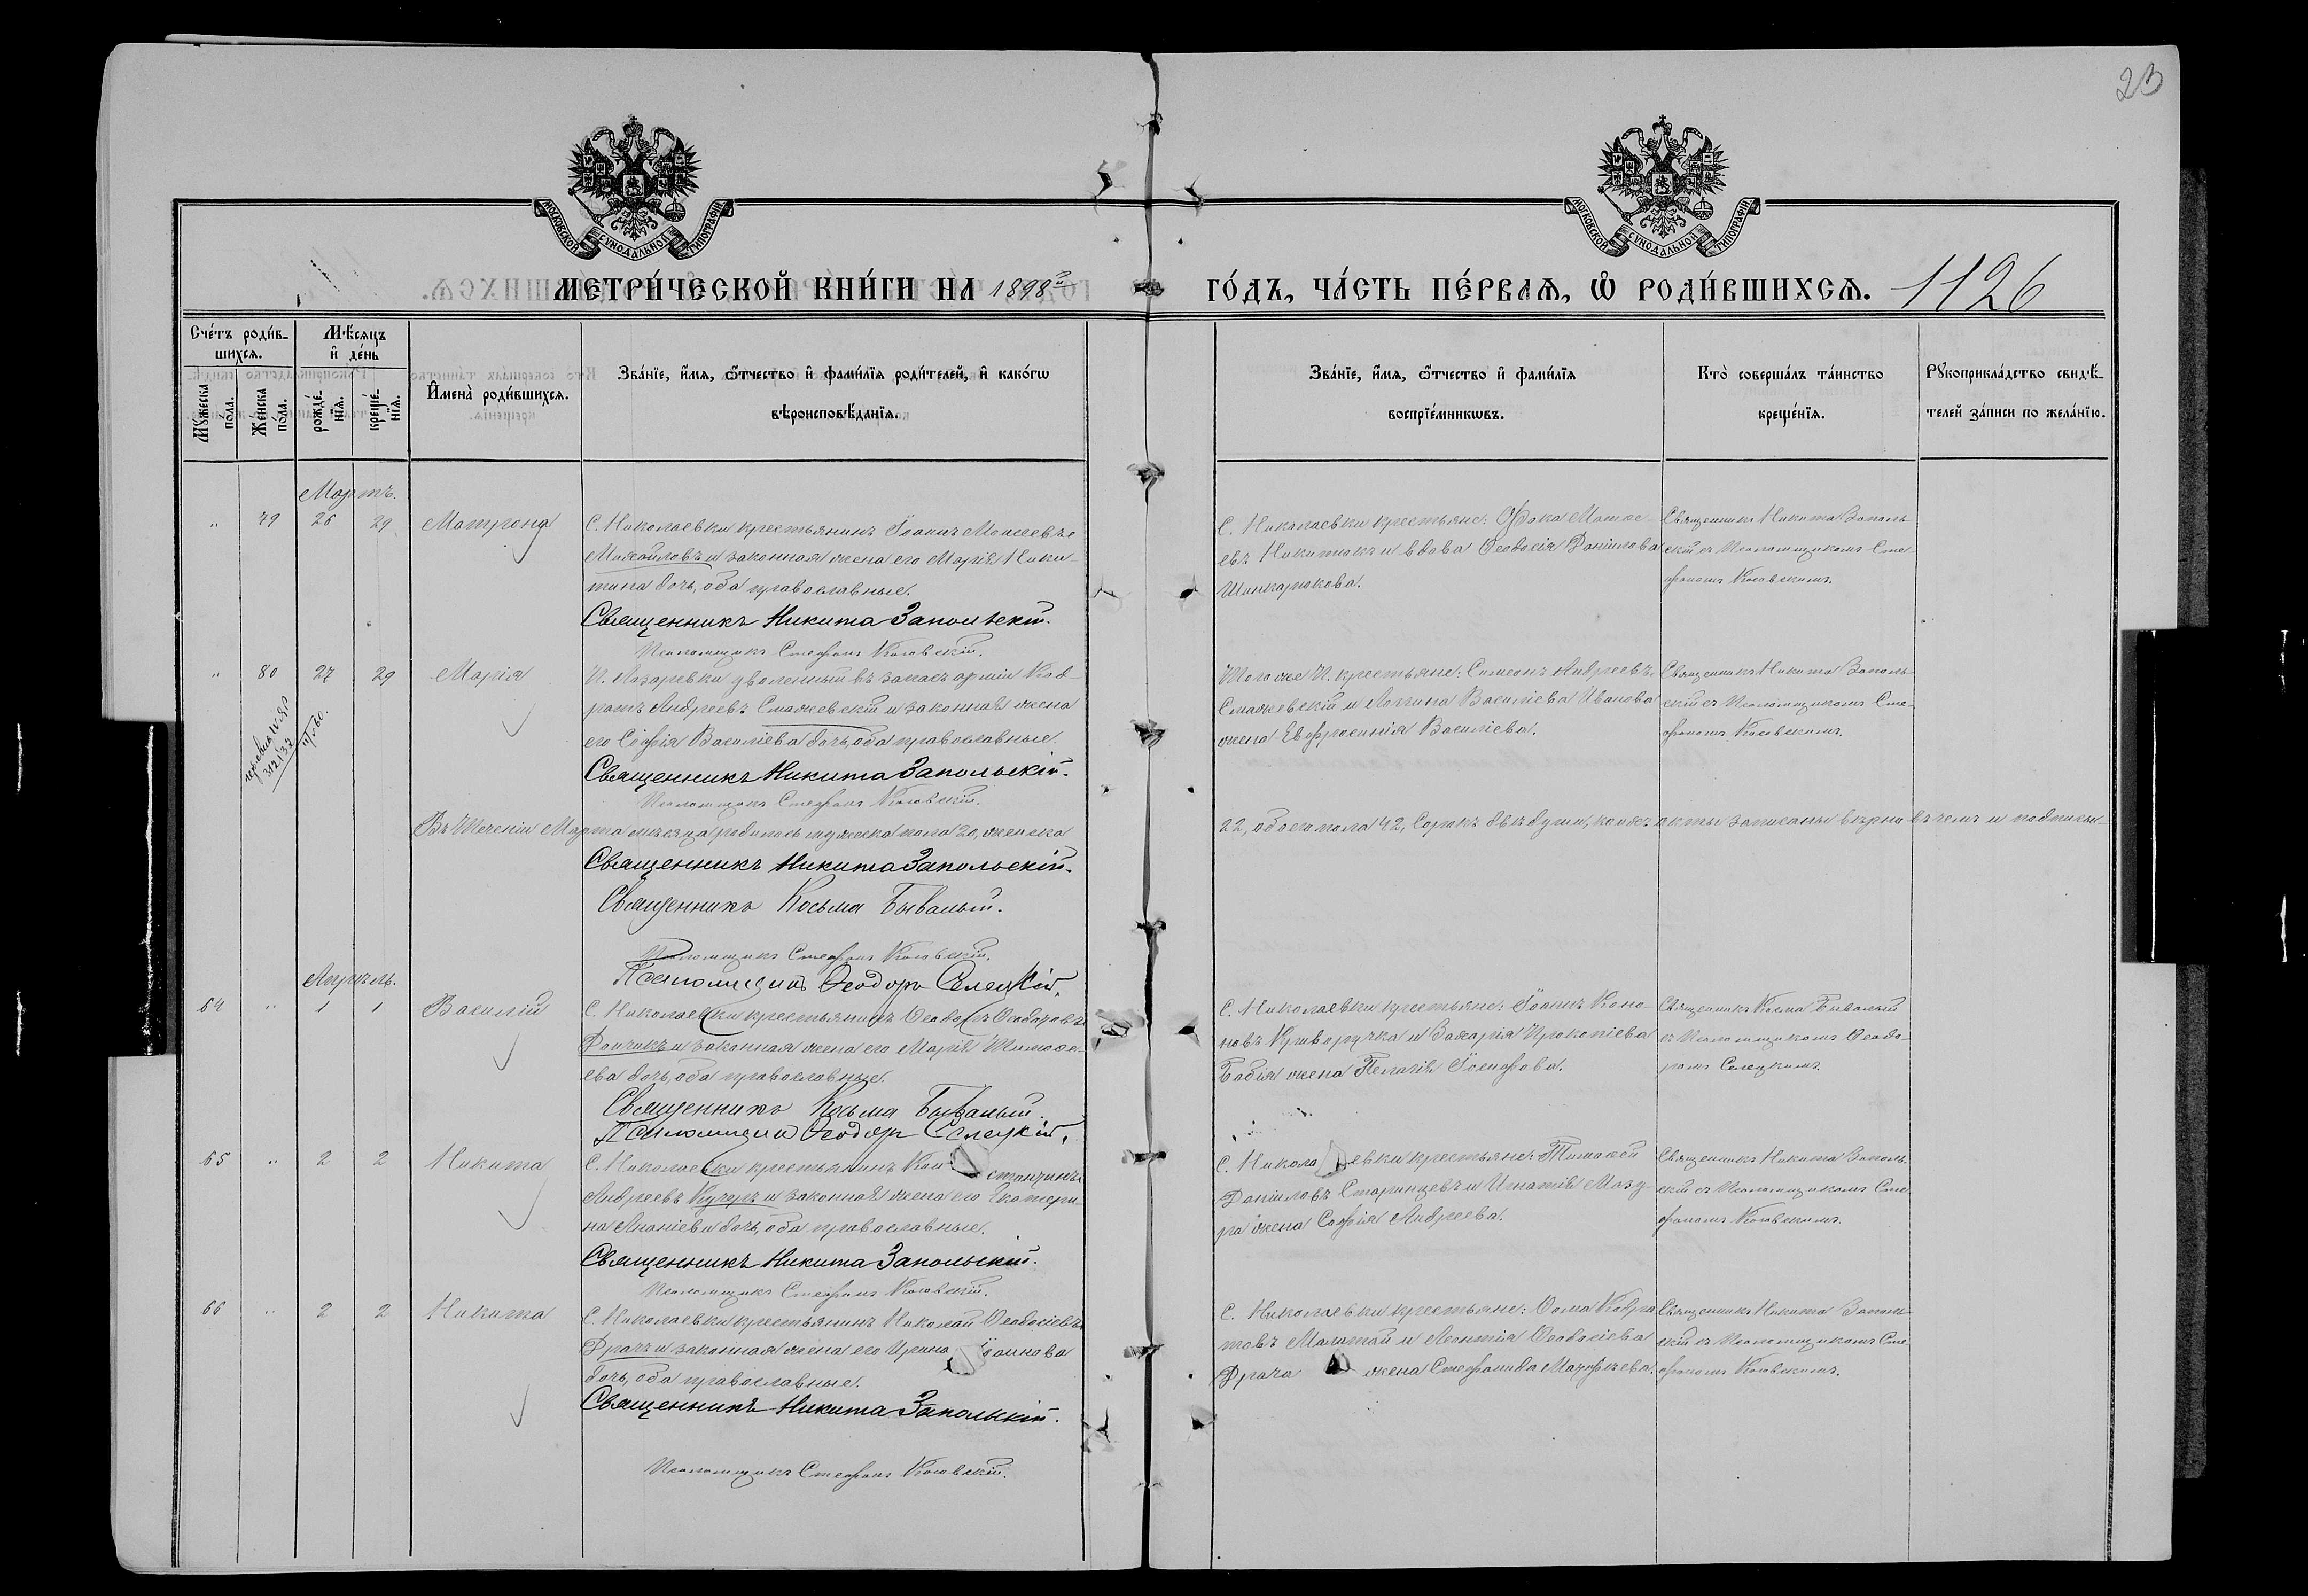 23
МОСКОВСКОЙ СѴНОДАЛЬНОЙ ТИПОГРАФІИ
МОСКОВСКОЙ СѴНОДАЛЬНОЙ ТИПОГРАФІИ
МЕТРИ́ЧЕСКОЙ КНИ́ГИ НА 1898й ГО́ДЪ, ЧА́СТЬ ПЕ́РВАѦ, Ѽ РОДИ́ВШИХСѦ. 1126
Сче́тъ роди́в-
шихсѧ.
Мꙋ́жеска по́ла.
Же́нска по́ла.
Мѣ́сѧцъ
и҆ де́нь
рожде́-
нїѧ.
креще́-
нїѧ.
И҆мена̀ роди́вшихсѧ.
Зва́нїе, и҆́мѧ, ѻ҆́тчество и҆ фами́лїѧ роди́телей, и҆ како́гѡ
вѣроисповѣ́данїѧ.
Зва́нїе, и҆́мѧ, ѻ҆́тчество и҆ фами́лїѧ
воспрїе́мникѡвъ.
Кто̀ соверша́лъ та́инство
креще́нїѧ.
Рꙋкоприкла́дство свидѣ́-
телей за́писи по жела́нїю.
Мартъ.
" 79 26 29 Матрона
С. Николаевки крестьянинъ Іоаннъ Моисеевъ
Михайловъ и законная жена его Марія Ники-
тина дочь, оба православные.
Священникъ Никита Запольскій.
Псаломщикъ Стефанъ Косовскій.
С. Николаевки крестьяне: Фока Матѳе-
евъ Никитюкъ и вдова Ѳеодосія Даніилова
Шинкарюкова.
Священникъ Никита Заполь-
скій съ Псаломщикомъ Сте-
фаномъ Косовскимъ.
" 80 27 29 Марія
312/32
П. Лазаревки уволенный въ запасъ арміи Код-
ратъ Андреевъ Смажевскій и законная жена
его Софія Василіева дочь, оба православные.
Священникъ Никита Запольскій.
Псаломщикъ Стефанъ Косовскій.
Того же П. крестьяне: Симеонъ Андреевъ
Смажевскій и Логгина Василіева Иванова
жена Евфросинія Василіева.
Священникъ Никита Заполь-
скій съ Псаломщикомъ Сте-
фаномъ Косовскимъ.
Въ теченіи Марта мѣсяца родилось мужеска пола 20, женска
22, обоего пола 42, сорокъ двѣ души, коихъ акты записаны вѣрно въ чемъ и подписы-
Священникъ Никита Запольскій.
Священникъ Косьма Бывалый.
Псаломщикъ Стефанъ Косовскій.
Псаломщикъ Ѳеодоръ Селецкій.
Апрѣль.
64 " 1 1 Василій
С. Николаевки крестьянинъ Ѳеодоръ Ѳеодоровъ
Дончикъ и законная жена его Марія Тимоѳе-
ева дочь, оба православные.
Священникъ Косьма Бывалый.
Псаломщикъ Ѳеодоръ Селецкій.
С. Николаевки крестьяне: Іоаннъ Коно-
новъ Криворучка и Захарія Прокопіева
Бабія жена Пелагія Іосифова.
Священникъ Косма Бывалый
съ Псаломщикомъ Ѳеодо-
ромъ Селецкимъ.
65 " 2 2 Никита
С. Николаевки крестьянинъ Констанцинъ
Андреевъ Кучеръ и законная жена его Екатери-
на Ананіева дочь, оба православные.
Священникъ Никита Запольскій.
Псаломщикъ Стефанъ Косовскій.
С. Николаевки крестьяне: Тимоѳей
Даніиловъ Старинцевъ и Игнатія Мазу-
ра жена Софія Андреева.
Священникъ Никита Заполь-
скій съ Псаломщикомъ Сте-
фаномъ Косовскимъ.
66 " 2 2 Никита
С. Николаевки крестьянинъ Николай Ѳеодосіевъ
Драчъ и законная жена его Ирина Іоаннова
дочь, оба православные.
Священникъ Никита Запольскій.
Псаломщикъ Стефанъ Косовскій.
С. Николаевки крестьяне: Ѳома Кодра-
товъ Малатай и Леонтія Ѳеодосіева
Драча жена Стефанида Маѳеева.
Священникъ Никита Заполь-
скій съ Псаломщикомъ Сте-
фаномъ Косовскимъ.